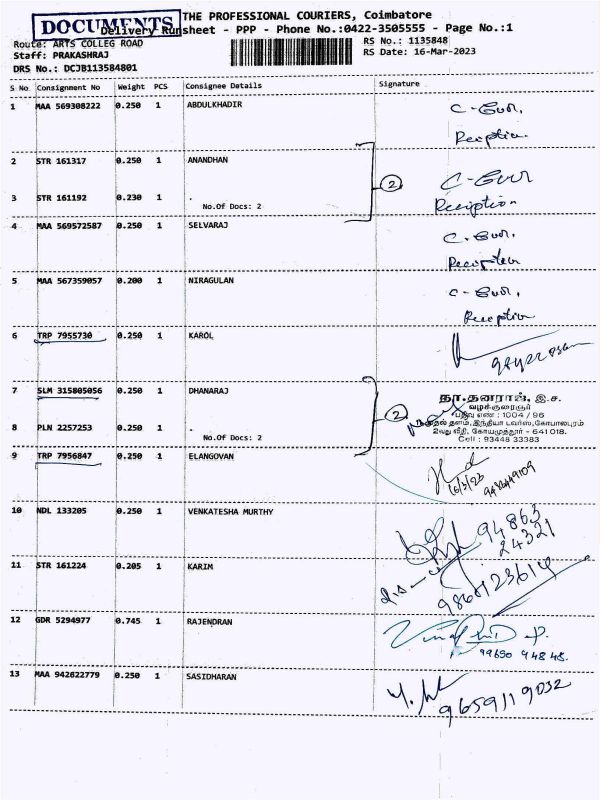 DOCUMENTS
THE PROFESSIONAL COURIERS, Coimbatore
Delivery Runsheet - PPP - Phone No.:0422-3505555 - Page No.:1
Route: ARTS COLLEG ROAD
RS No.: 1135848
Staff: PRAKASHRAJ
RS Date: 16-Mar-2023
DRS No.: DCJB113584801
S No Consignment No Weight PCS Consignee Details Signature
1 MAA 569308222 0.250 1 ABDULKHADIR
Reception
2 STR 161317 0.250 1 ANANDHAN
2
3 STR 161192 0.230 1 .
No.Of Docs: 2
Reception
4 MAA 569572587 0.250 1 SELVARAJ
Reception
5 MAA 567359057 0.200 1 NIRAGULAN
Reception
6 TRP 7955730 0.250 1 KAROL
7 SLM 315805056 0.250 1 DHANARAJ
தா.தனராஜ், இ.ச.
வழக்குரைஞர்
பதிவு எண் : 1004 / 96
2
8 PLN 2257253 0.250 1 .
முதல் தளம், இந்தியா டவர்ஸ், கோபாலபுரம்
2வது வீதி, கோயமுத்தூர் - 641 018.
No.Of Docs: 2
Cell : 93448 33383
9 TRP 7956847 0.250 1 ELANGOVAN
16/3/23
10 NDL 133205 0.250 1 VENKATESHA MURTHY
94863
24321
11 STR 161224 0.205 1 KARIM
12 GDR 5294977 0.745 1 RAJENDRAN
99650 94845.
13 MAA 942622779 0.250 1 SASIDHARAN
9659119032